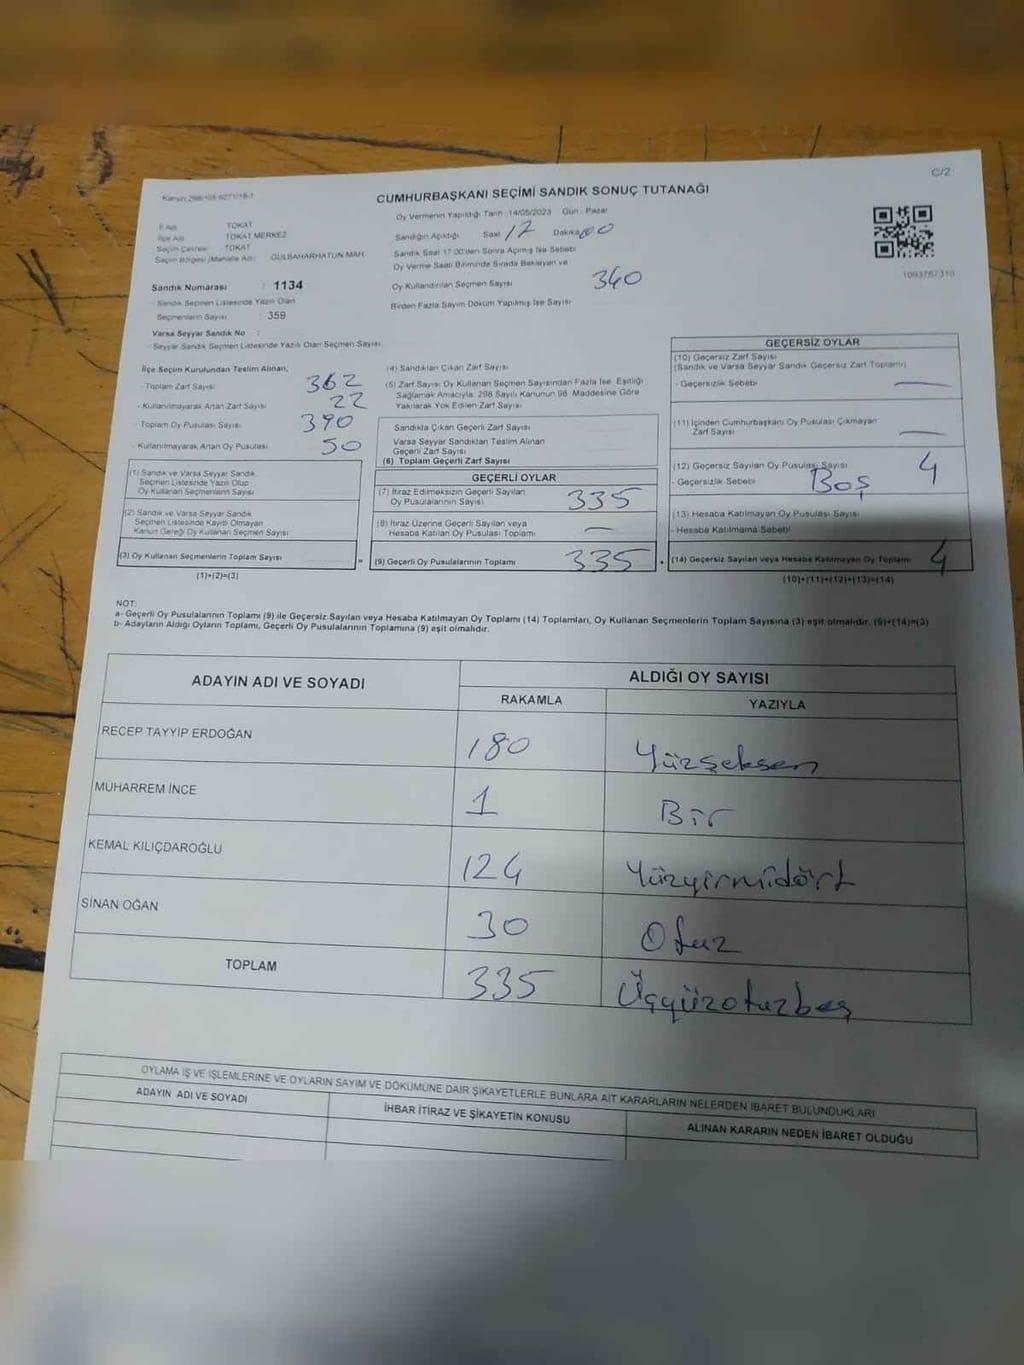 C/2
CUMHURBAŞKANI SEÇİMİ SANDIK SONUÇ TUTANAĞI
İl Adı : TOKAT
İlçe Adı : TOKAT MERKEZ
Seçim Çevresi : TOKAT
Seçim Bölgesi (Mahalle Adı) : GÜLBAHARHATUN MAH.
Sandık Numarası : 1134
Sandık Seçmen Listesinde Yazılı Olan
Seçmenlerin Sayısı : 359
Varsa Seyyar Sandık No :
- Seyyar Sandık Seçmen Listesinde Yazılı Olan Seçmen Sayısı
Oy Vermenin Yapıldığı Tarih : 14/05/2023 Gün : Pazar
Sandığın Açıldığı Saat 17 Dakika 00
Sandık Saat 17.00'den Sonra Açılmış İse Sebebi
Oy Verme Saati Bitiminde Sırada Bekleyen ve
Oy Kullandırılan Seçmen Sayısı 340
Birden Fazla Sayım Döküm Yapılmış İse Sayısı
1093767316
İlçe Seçim Kurulundan Teslim Alınan,
- Toplam Zarf Sayısı 362
- Kullanılmayarak Artan Zarf Sayısı 22
- Toplam Oy Pusulası Sayısı 390
- Kullanılmayarak Artan Oy Pusulası 50
(1) Sandık ve Varsa Seyyar Sandık
Seçmen Listesinde Yazılı Olup
Oy Kullanan Seçmenlerin Sayısı
(2) Sandık ve Varsa Seyyar Sandık
Seçmen Listesinde Kayıtlı Olmayan
Kanun Gereği Oy Kullanan Seçmen Sayısı
(3) Oy Kullanan Seçmenlerin Toplam Sayısı =
(1)+(2)=(3)
(4) Sandıktan Çıkan Zarf Sayısı
(5) Zarf Sayısı Oy Kullanan Seçmen Sayısından Fazla İse, Eşitliği
Sağlamak Amacıyla, 298 Sayılı Kanunun 98. Maddesine Göre
Yakılarak Yok Edilen Zarf Sayısı
Sandıkta Çıkan Geçerli Zarf Sayısı
Varsa Seyyar Sandıktan Teslim Alınan
Geçerli Zarf Sayısı
(6) Toplam Geçerli Zarf Sayısı
GEÇERLİ OYLAR
(7) İtiraz Edilmeksizin Geçerli Sayılan
Oy Pusulalarının Sayısı 335
(8) İtiraz Üzerine Geçerli Sayılan veya
Hesaba Katılan Oy Pusulası Toplamı —
(9) Geçerli Oy Pusulalarının Toplamı 335 +
GEÇERSİZ OYLAR
(10) Geçersiz Zarf Sayısı
(Sandık ve Varsa Seyyar Sandık Geçersiz Zarf Toplamı)
- Geçersizlik Sebebi —
(11) İçinden Cumhurbaşkanı Oy Pusulası Çıkmayan
Zarf Sayısı —
(12) Geçersiz Sayılan Oy Pusulası Sayısı 4
- Geçersizlik Sebebi Boş
(13) Hesaba Katılmayan Oy Pusulası Sayısı
- Hesaba Katılmama Sebebi
(14) Geçersiz Sayılan veya Hesaba Katılmayan Oy Toplamı 4
(10)+(11)+(12)+(13)=(14)
NOT:
a- Geçerli Oy Pusulalarının Toplamı (9) ile Geçersiz Sayılan veya Hesaba Katılmayan Oy Toplamı (14) Toplamları, Oy Kullanan Seçmenlerin Toplam Sayısına (3) eşit olmalıdır. (9)+(14)=(3)
b- Adayların Aldığı Oyların Toplamı, Geçerli Oy Pusulalarının Toplamına (9) eşit olmalıdır.
ADAYIN ADI VE SOYADI
ALDIĞI OY SAYISI
RAKAMLA YAZIYLA
RECEP TAYYİP ERDOĞAN 180 Yüzseksen
MUHARREM İNCE 1 Bir
KEMAL KILIÇDAROĞLU 124 Yüzyirmidört
SİNAN OĞAN 30 Otuz
TOPLAM 335 Üçyüzotuzbeş
OYLAMA İŞ VE İŞLEMLERİNE VE OYLARIN SAYIM VE DÖKÜMÜNE DAİR ŞİKAYETLERLE BUNLARA AİT KARARLARIN NELERDEN İBARET BULUNDUKLARI
ADAYIN ADI VE SOYADI İHBAR İTİRAZ VE ŞİKAYETİN KONUSU ALINAN KARARIN NEDEN İBARET OLDUĞU